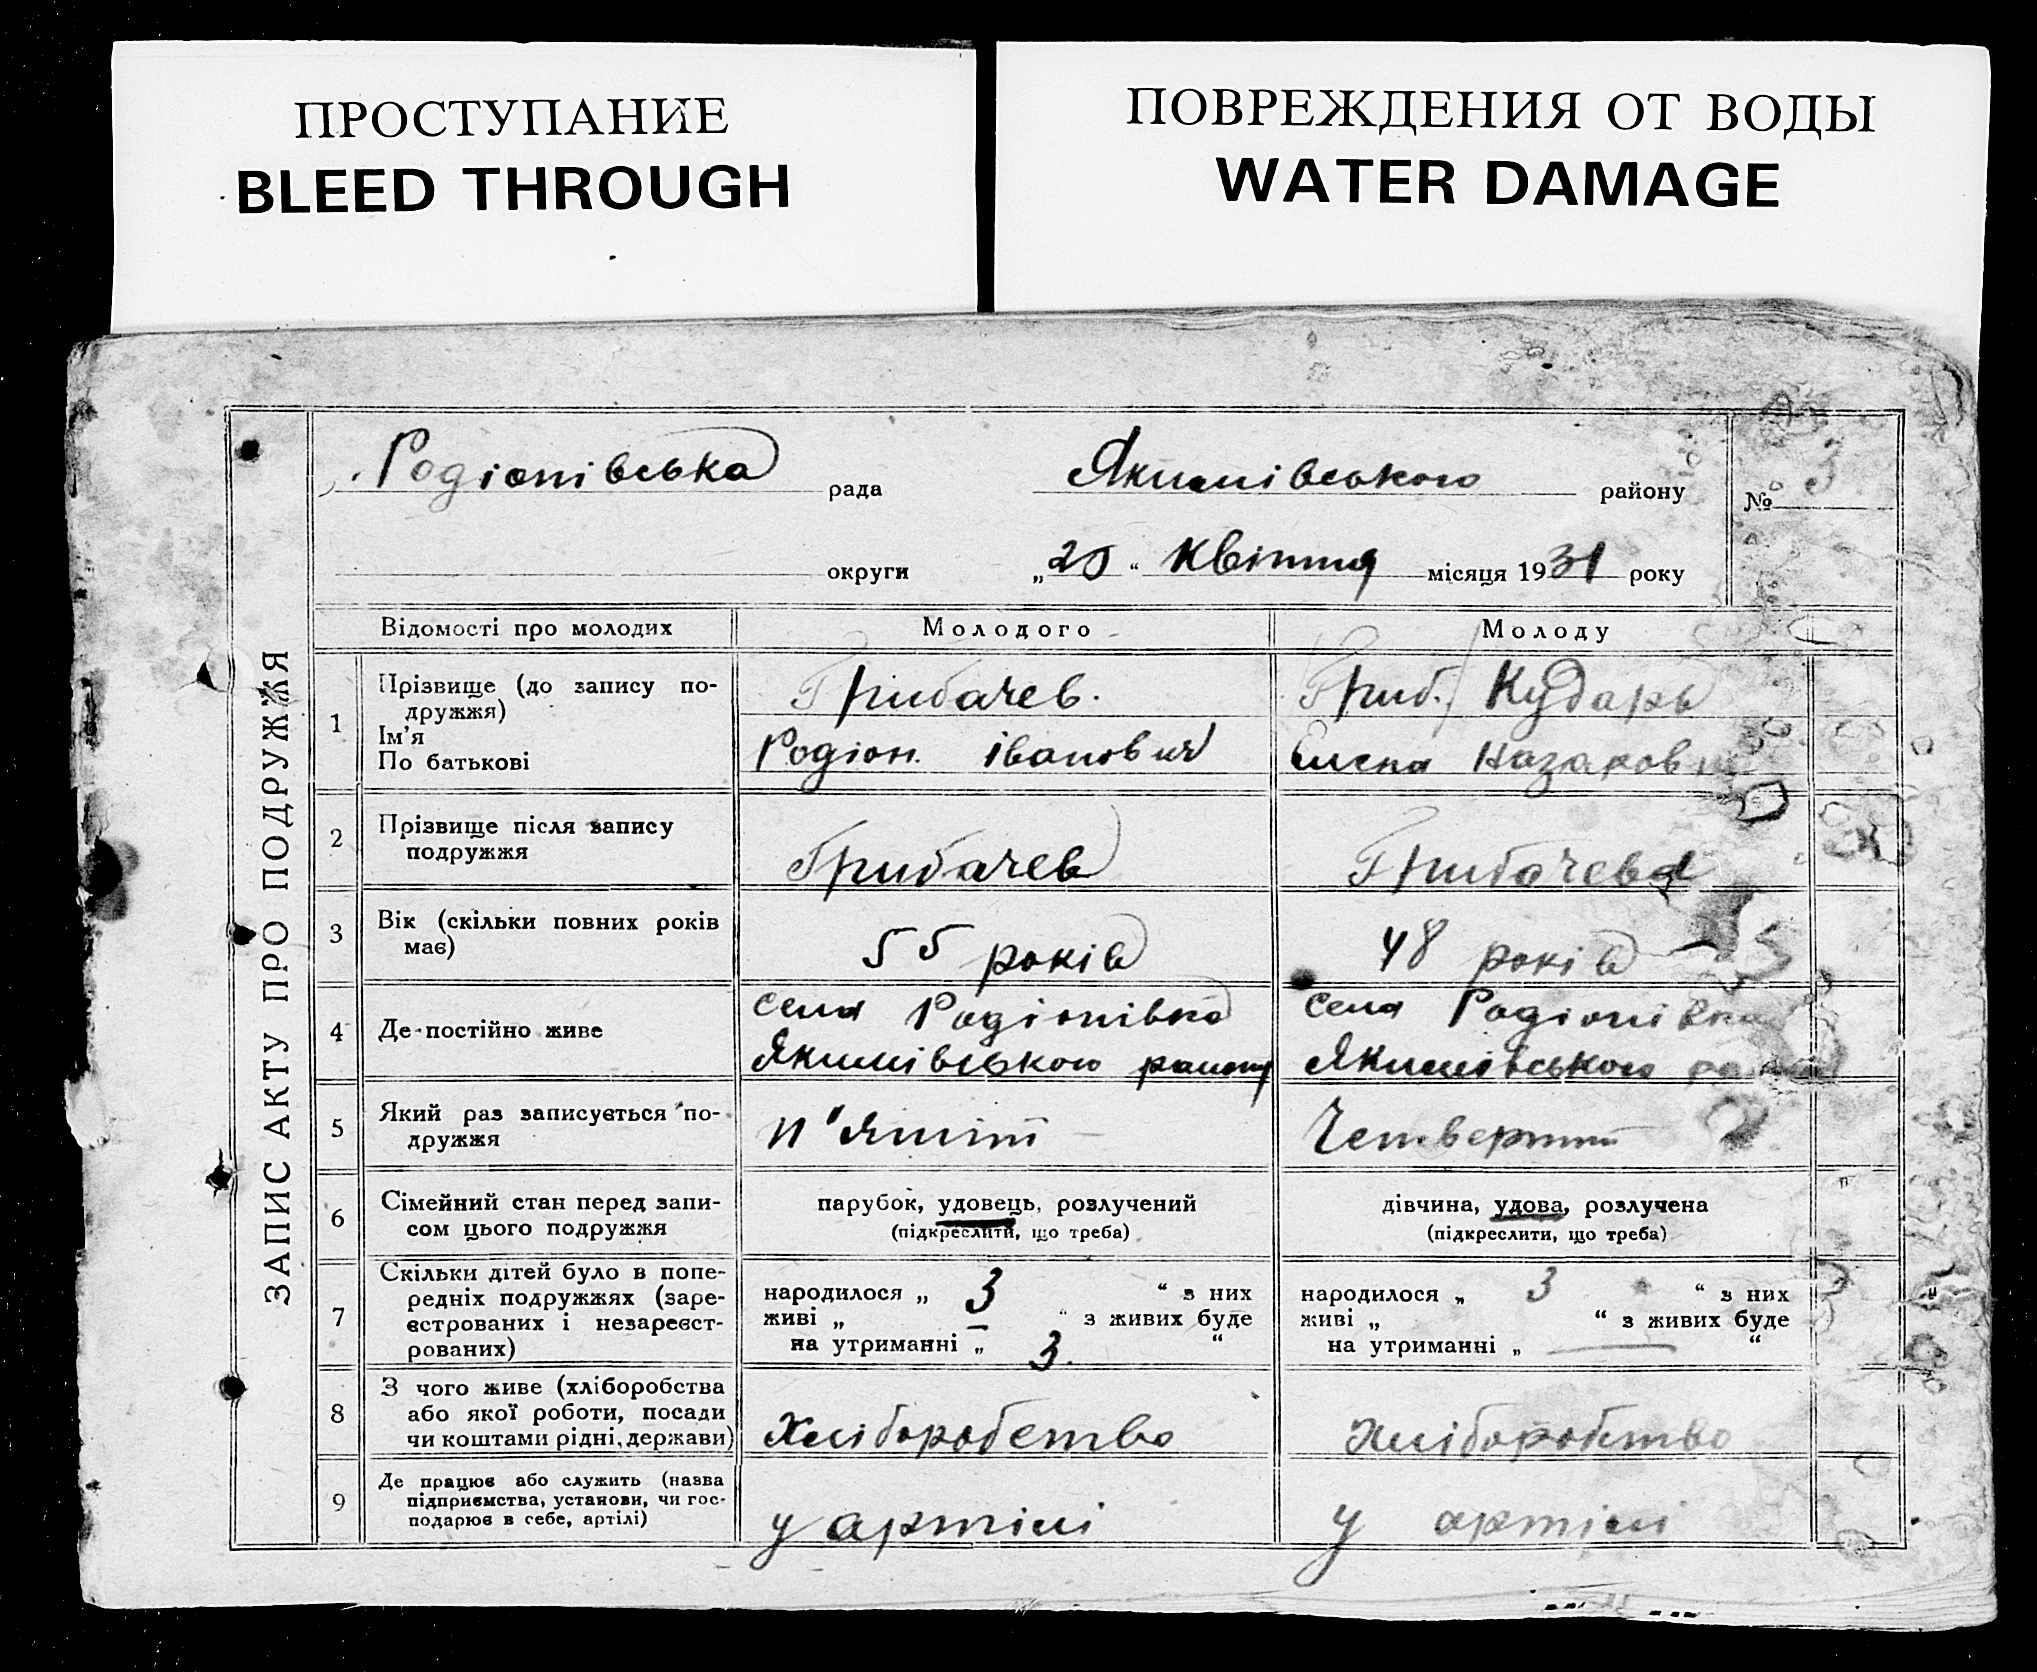 ПРОСТУПАНИЕ
BLEED THROUGH
ПОВРЕЖДЕНИЯ ОТ ВОДЫ
WATER DAMAGE
ЗАПИС АКТУ ПРО ПОДРУЖЖЯ
Родіонівська рада Якимівського району № 3
округи „20“ квітня місяця 1931 року
Відомості про молодих Молодого Молоду
1 Прізвище (до запису по- Грибачев. Гриб. / Кударь
дружжя)
Ім'я Родіон Іванович Елена Назаровн
По батькові
2 Прізвище після запису
подружжя Грибачев Грибачева
3 Вік (скільки повних років 55 років 48 років
має)
4 Де постійно живе села Родіонівка села Родіонівка
Якимівського району Якимівського
5 Який раз записується по- п'ятіт Четвертит
дружжя
6 Сімейний стан перед запи- парубок, удовець, розлучений дівчина, удова, розлучена
сом цього подружжя (підкреслити, що треба) (підкреслити, що треба)
7 Скільки дітей було в попе- народилося „ 3 “ з них народилося „ 3 “ з них
редніх подружжях (заре- живі „ — “ з живих буде живі „ “ з живих буде
єстрованих і незареєст- на утриманні „ 3. “ на утриманні „ — “
рованих)
8 З чого живе (хліборобства
або якої роботи, посади
чи коштами рідні, держави) Хліборобство Хліборобство
9 Де працює або служить (назва
підприємства, установи, чи гос-
подарює в себе, артілі) у артілі у артілі